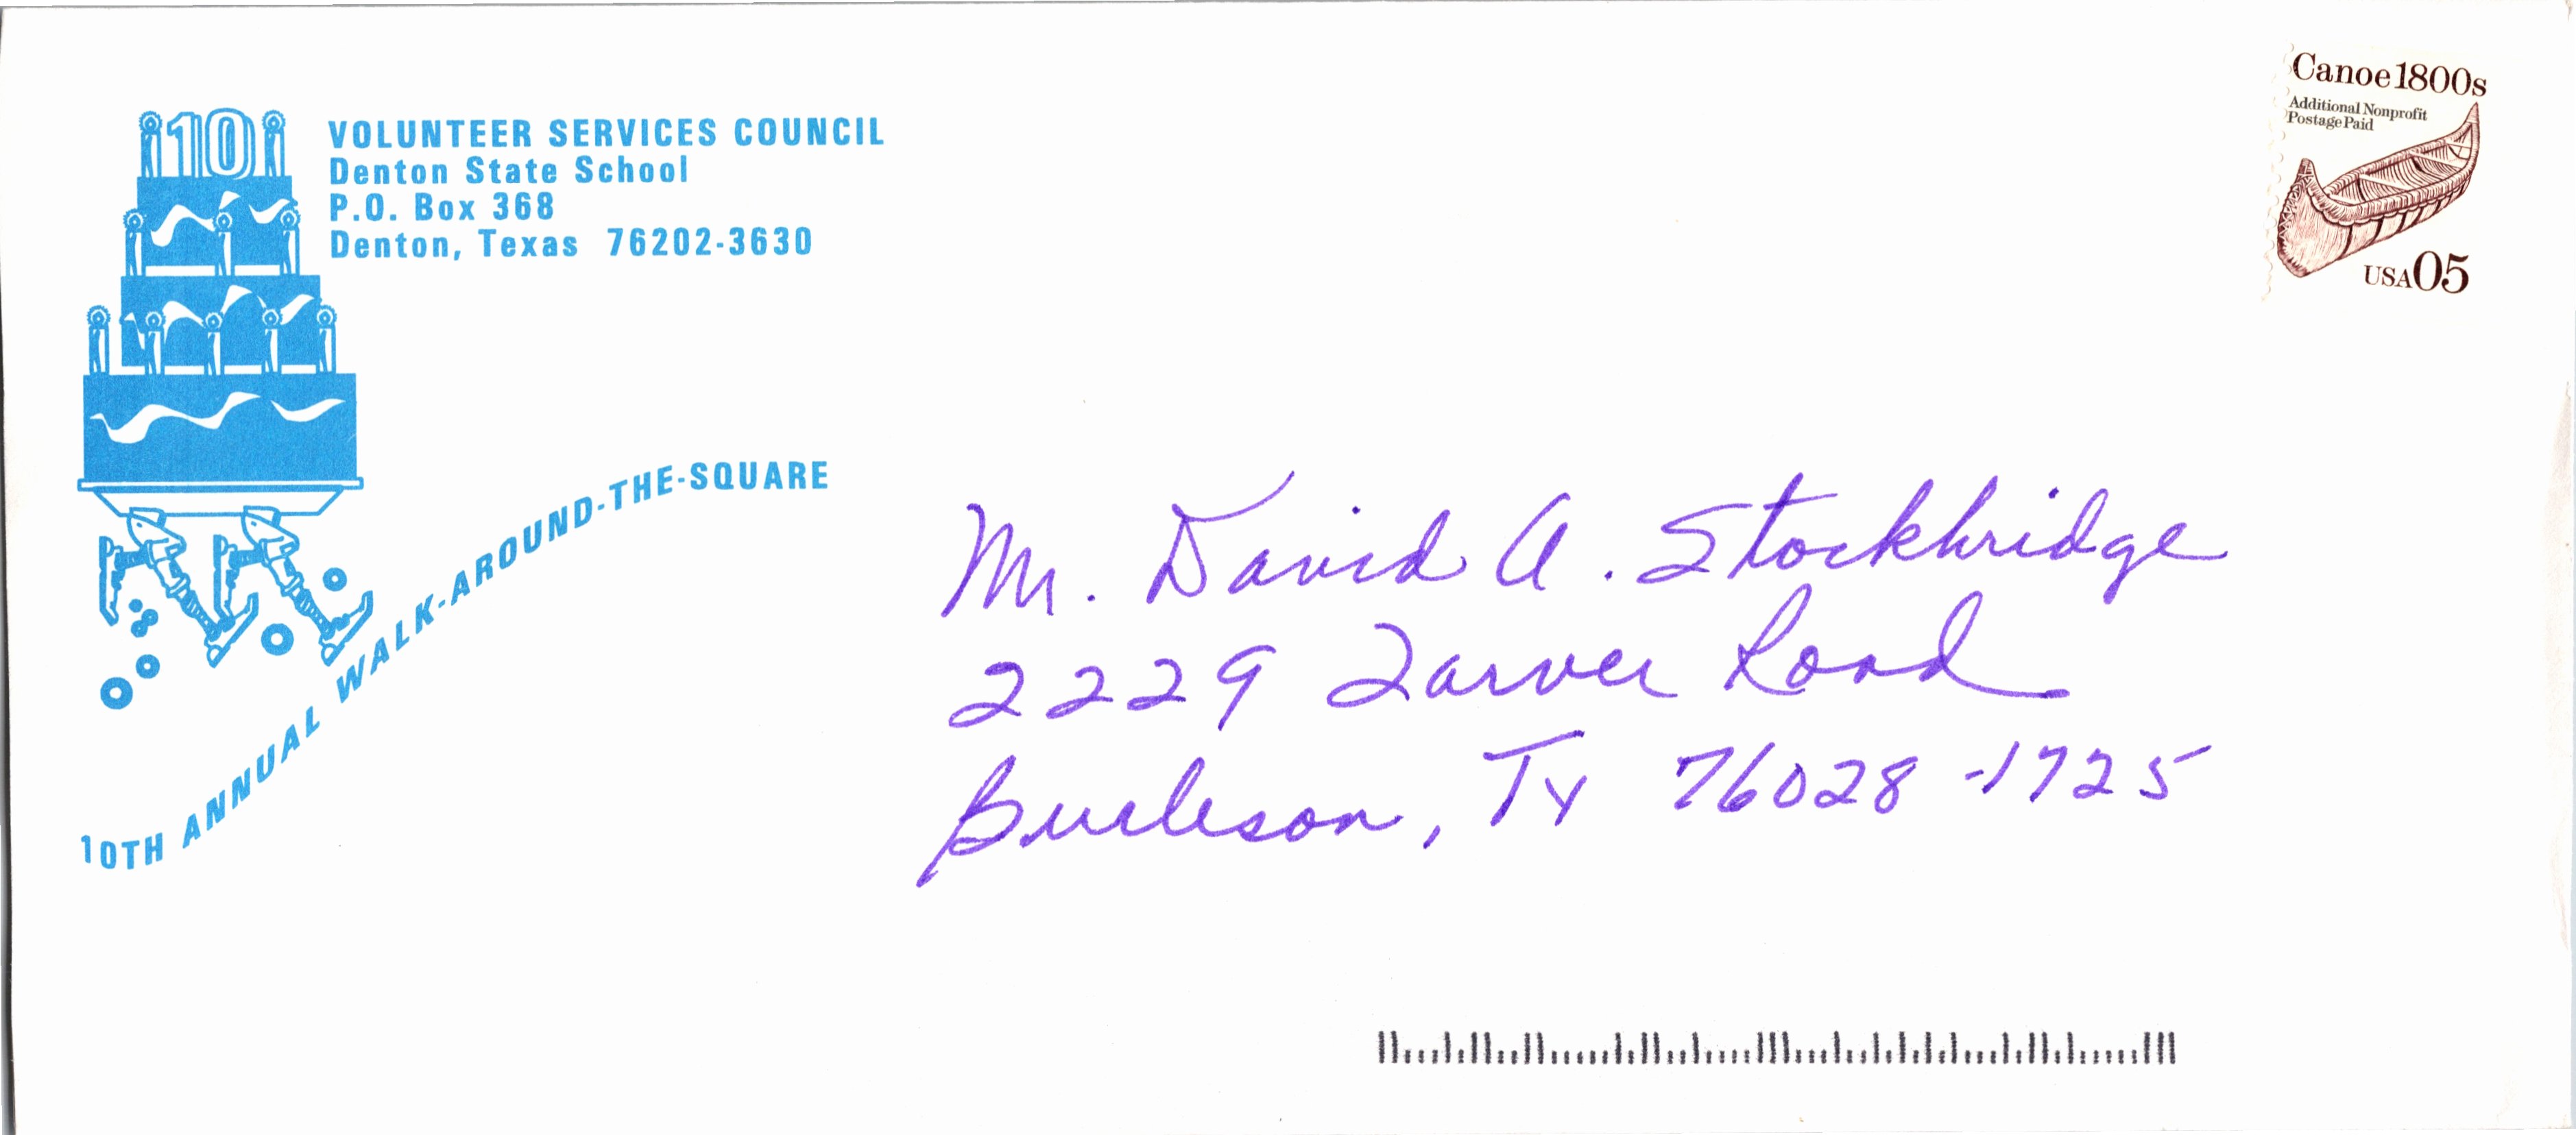 10
VOLUNTEER SERVICES COUNCIL
Denton State School
P.O. Box 368
Denton, Texas 76202-3630
10TH ANNUAL WALK-AROUND-THE-SQUARE
Canoe 1800s
Additional Nonprofit
Postage Paid
USA 05
Mr. David A. Stockbridge
2229 Tarver Road
Burleson, Tx 76028-1725